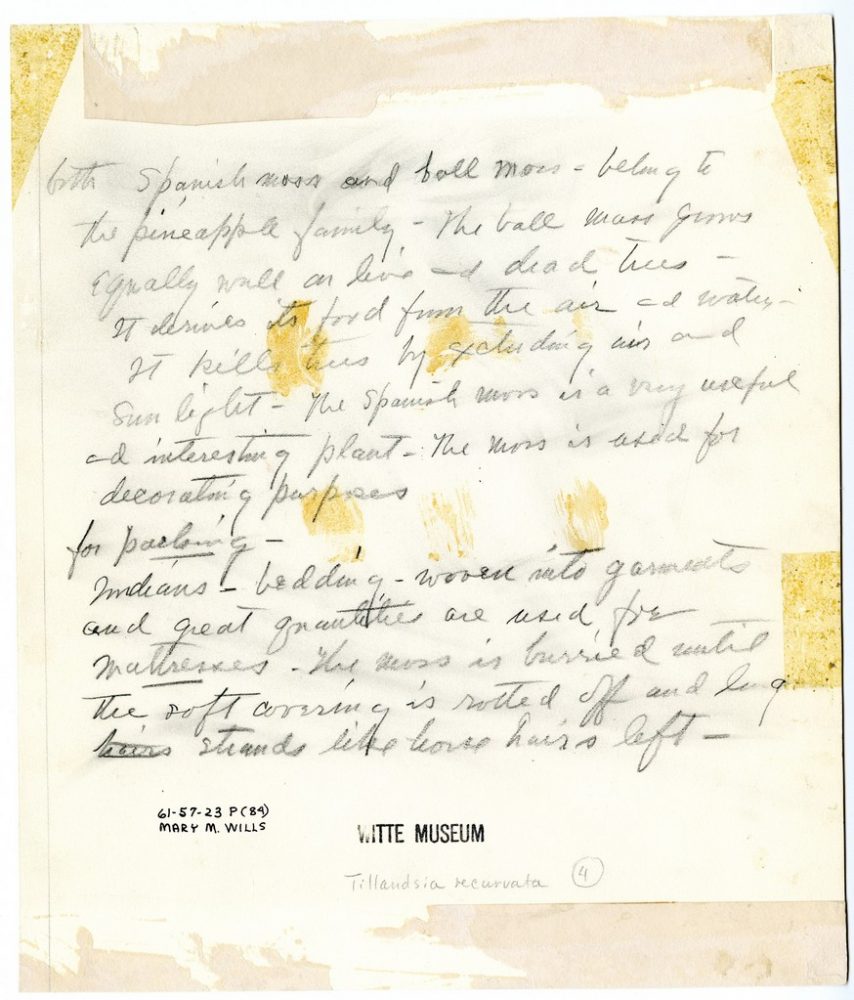 both Spanish moss and ball moss - belong to
the pineapple family - The ball moss grows
Equally well on live and dead trees -
It derives its food from the air and water -
It kills trees by excluding air and
Sun light - The Spanish moss is a very useful
and interesting plant - The moss is used for
decorating purposes
for packing -
Indians - bedding - woven into garments
and great quantities are used for
mattresses - The moss is burried until
the soft covering is rotted off and long
hairs strands like horse hairs left -
61-57-23 P(84)
MARY M. WILLS
WITTE MUSEUM
Tillandsia recurvata 4